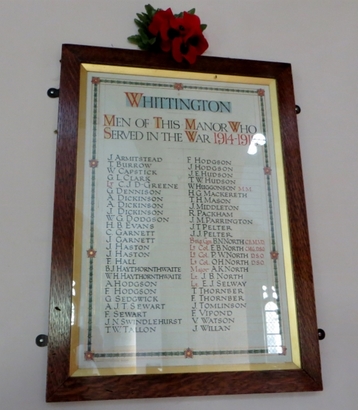 WHITTINGTON
MEN OF THIS MANOR WHO
SERVED IN THE WAR 1914-191
J ARMITSTEAD
T BURROW
W CAPSTICK
G L CLARK
Lt C.J.D-GREENE
G DENNISON
A DICKINSON
A DICKINSON
J DICKINSON
W G DODGSON
H B EVANS
C GARNETT
J GARNETT
J HASTON
J HASTON
F HALL
B.J HAYTHORNTHWAITE
W.H. HAYTHORNTHWAITE
A HODGSON
F HODGSON
G SEDGWICK
A J T SEWART
F SEWART
J.N SWINDLEHURST
T W TALLON
F HODGSON
J HODGSON
J.E HUDSON
T W HUDSON
W HIGGONSON M.M.
H G MACKERETH
T.H MASON
J MIDDLETON
R PACKHAM
J.M PARRINGTON
J.T PELTER
J.J PELTER
B.N NORTH
Lt Col. E B NORTH
Lt Col. P.W NORTH D.S.O.
Lt Col. O H NORTH D.S.O.
Major A K NORTH
Lt J.B NORTH
Lt E J SELWAY
T THORNBER
F THORNBER
J TOMLINSON
F VIPOND
V WATSON
J WILLAN